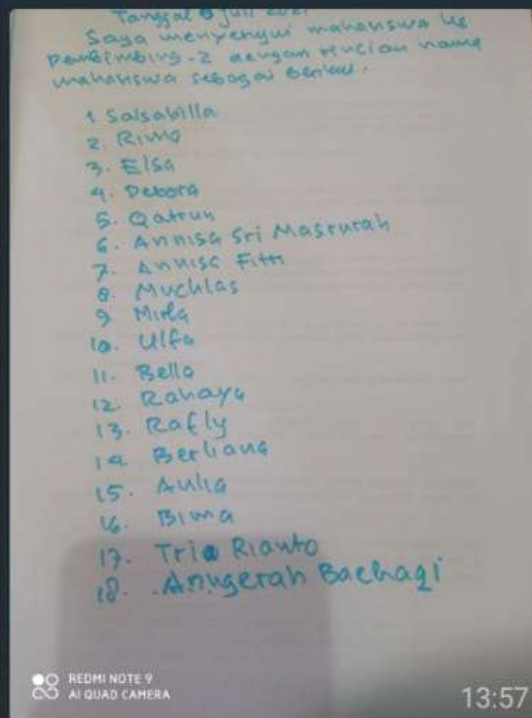 Tanggal 8 Juli 2021
Saya menyetujui mahasiswa ke
pembimbing-2 dengan rincian nama
mahasiswa sebagai berikut.
1. Salsabilla
2. Rima
3. Elsa
4. Debora
5. Qatrun
6. Annisa Sri Masrurah
7. Annisa Fitri
8. Muchlas
9. Mirla
10. Ulfa
11. Bella
12. Rahayu
13. Rafly
14. Berliana
15. Aulia
16. Bima
17. Trio Rianto
18. Anugerah Baehaqi
REDMI NOTE 9
AI QUAD CAMERA
13:57